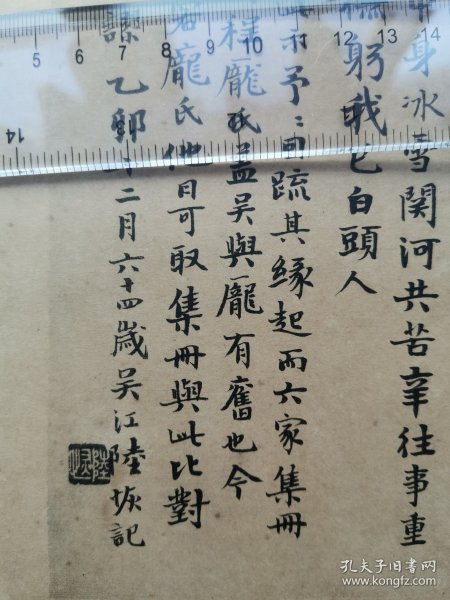 身冰雪關河共苦辛往事重
躬我已白頭人
示予予因疏其緣起而六家集冊
程龐氏蓋吳與龐有舊也今
龐氏他日可取集冊與此比對
乙卯十二月六十四歲吳江陸恢記
5 6 7 8 9 10 12 13 14
14
孔夫子旧书网
www.kongfz.com